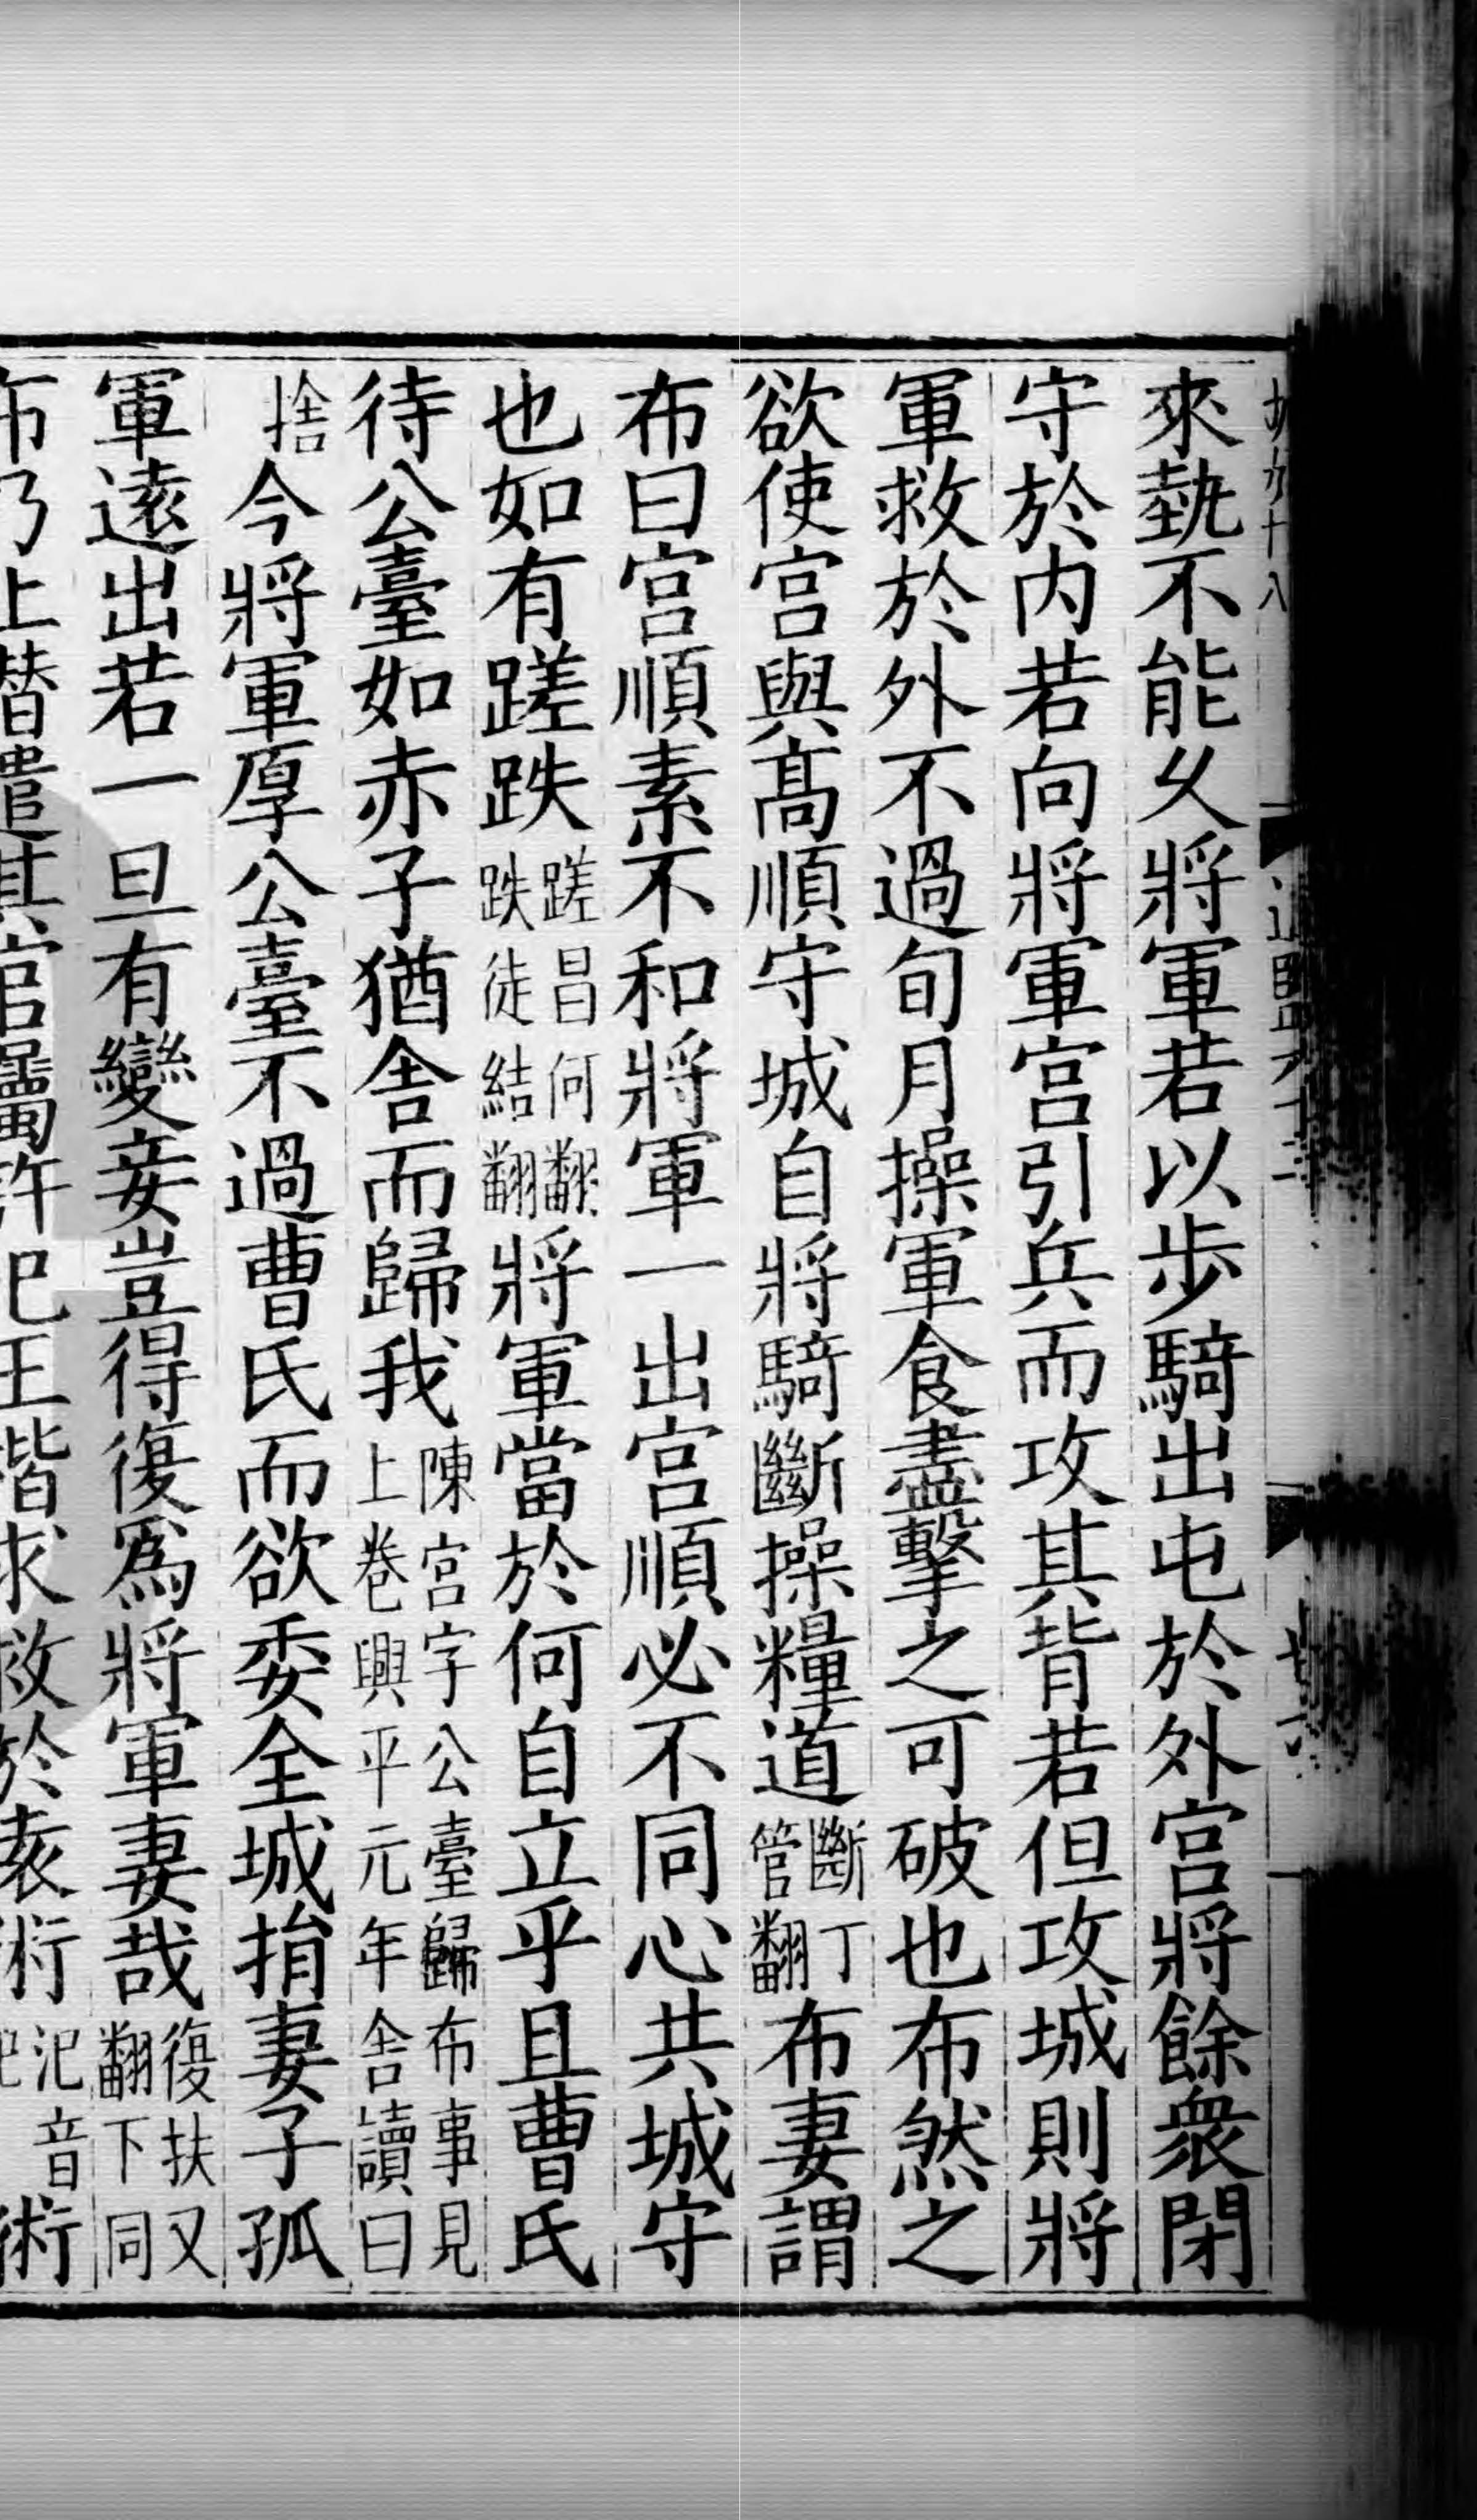 來埶不能乆將軍若以歩騎出屯於外宫將餘衆閉
守於内若向將軍宫引兵而攻其背若但攻城則將
軍救於外不過旬月操軍食盡擊之可破也布然之
欲使宫與髙順守城自將騎斷操糧道斷丁管翻布妻謂
布曰宫順素不和將軍一出宫順必不同心共城守
也如有蹉跌蹉昌何翻跌徒結翻將軍當於何自立乎且曹氏
待公臺如赤子猶舍而歸我陳宫字公臺歸布事見上卷興平元年舍讀曰
捨今將軍厚公臺不過曹氏而欲委全城捐妻子孤
軍逺出若一旦有變妾豈得復爲將軍妻哉復扶又翻下同
布乃上潛遣其官屬許汜王楷求救於袁術汜音祀術